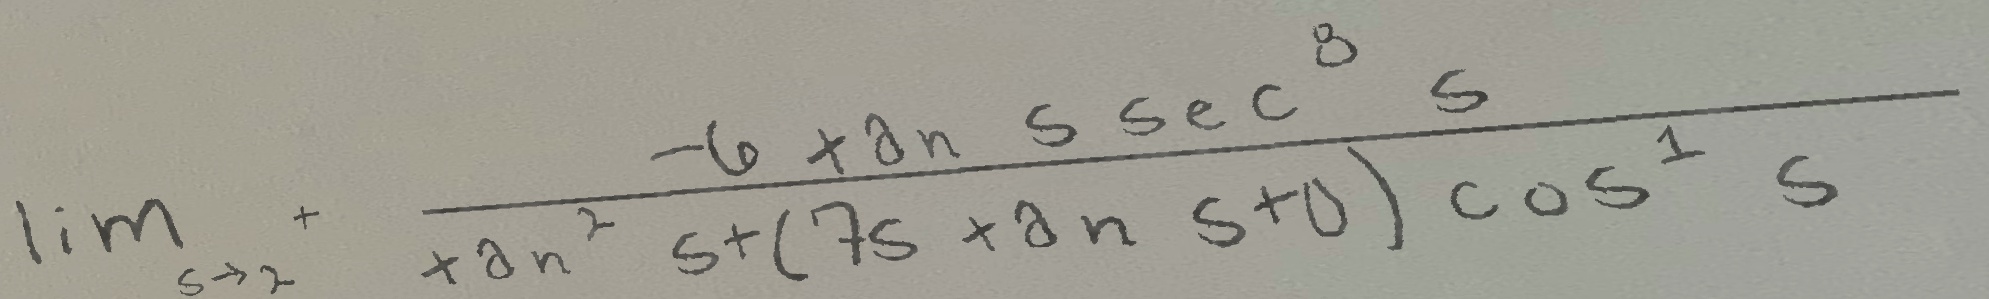 \lim_{s \to 2^+} \frac{-6 \tan s \sec^8 s}{\tan^2 s + (7s \tan s + 0) \cos^1 s}